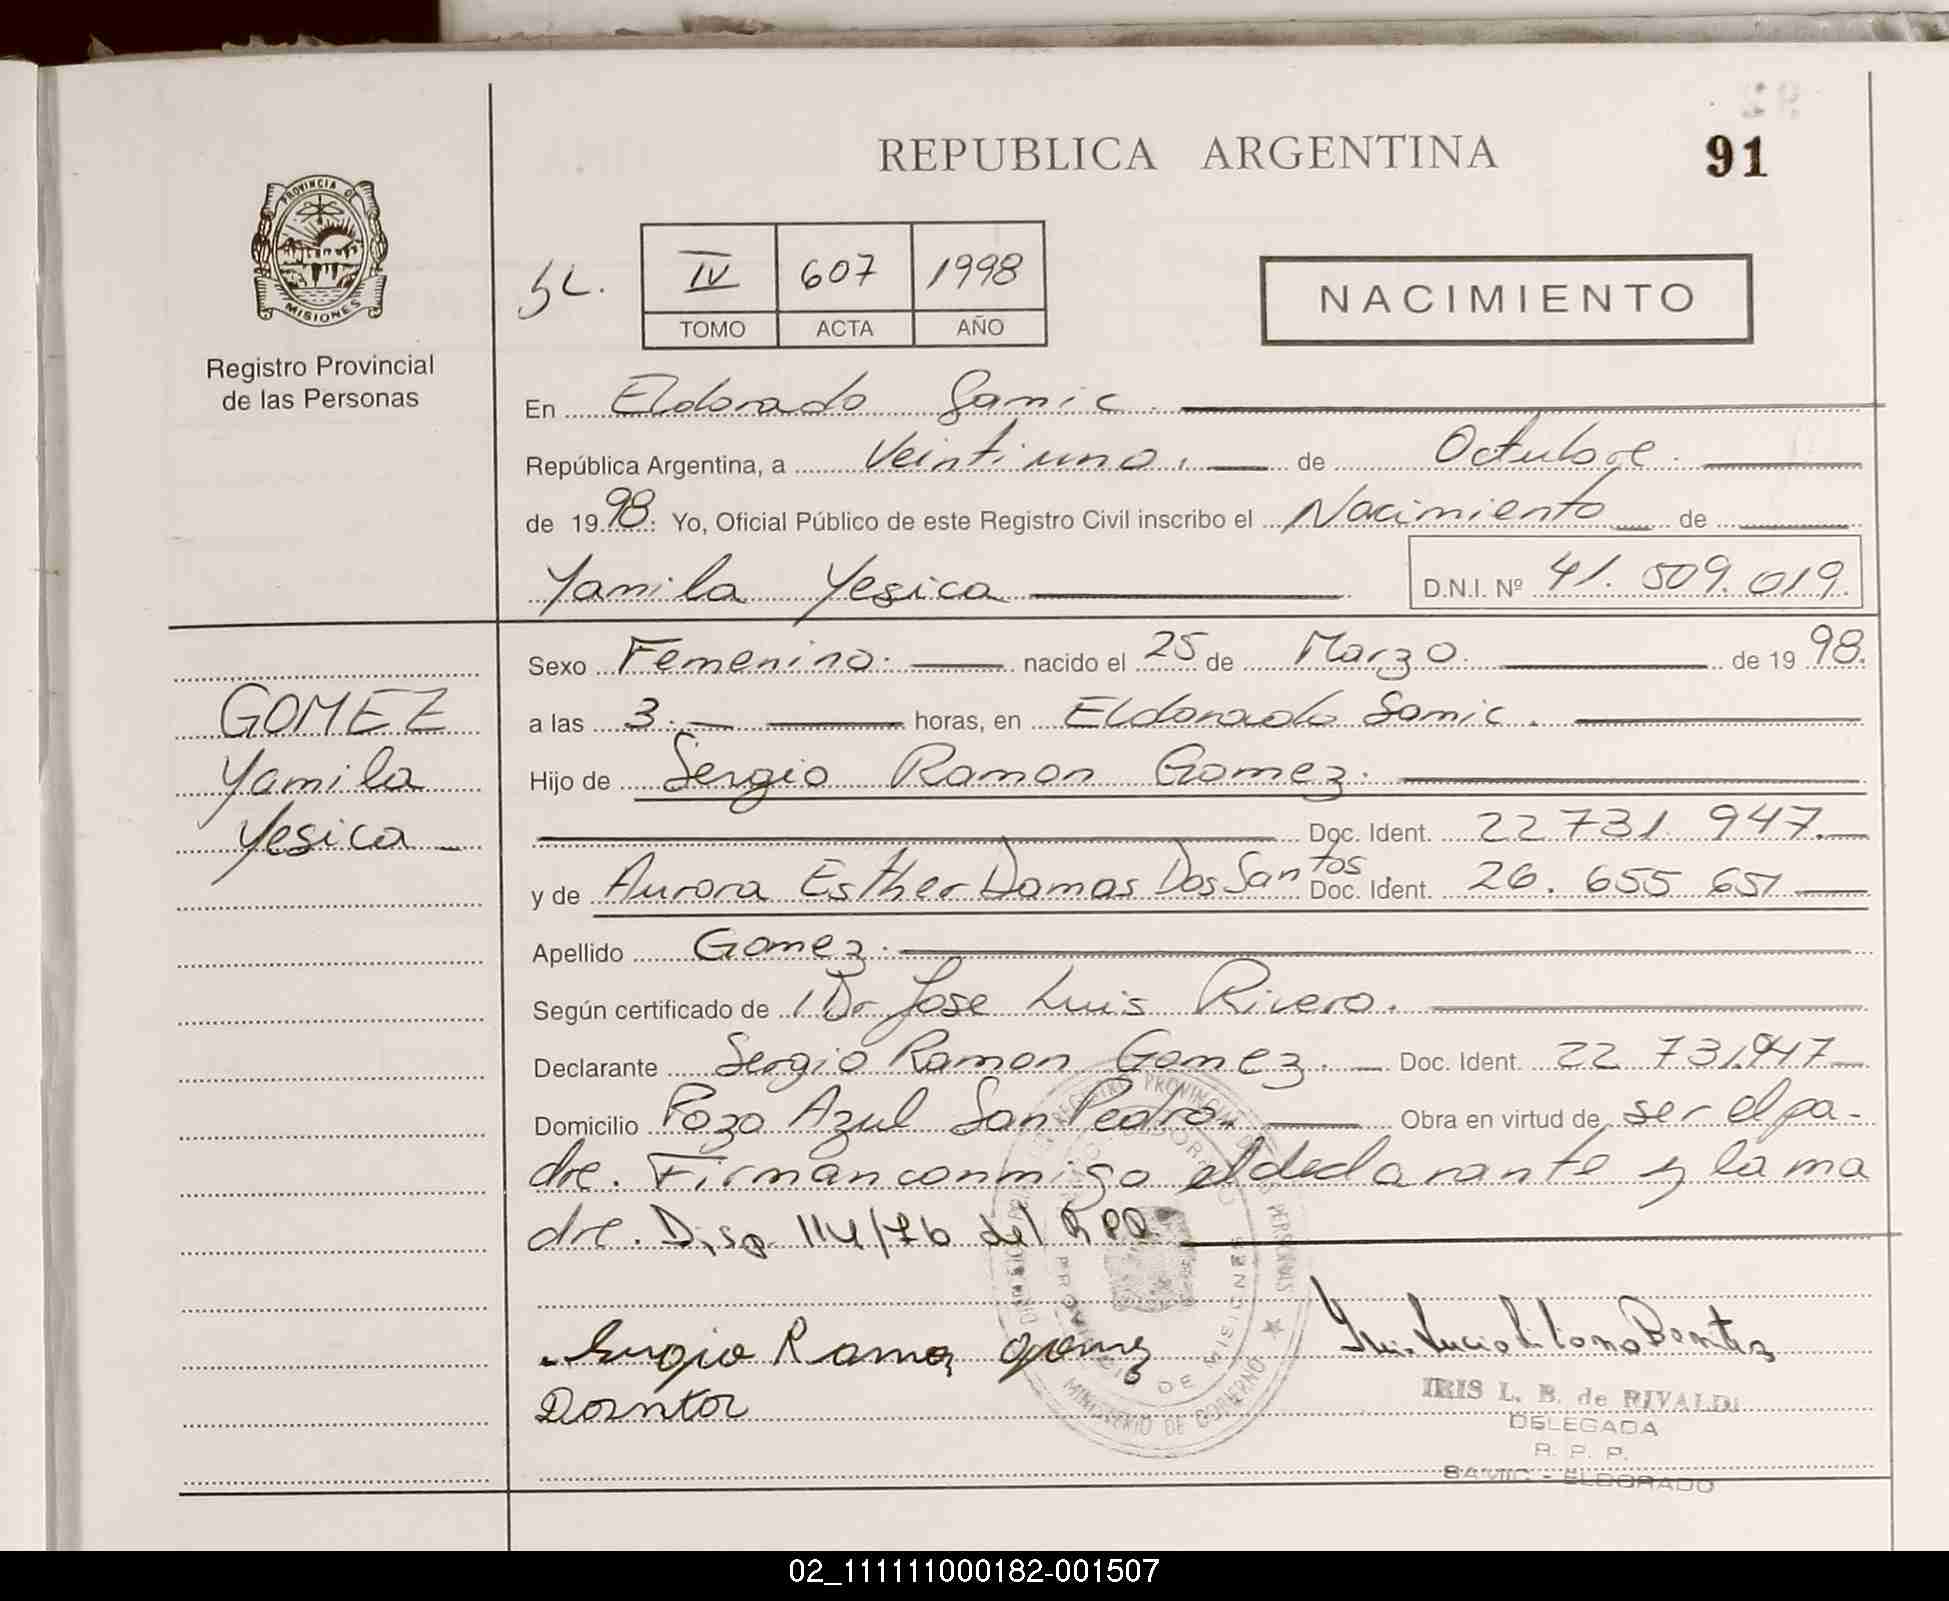 REPUBLICA ARGENTINA
91
PROVINCIA DE
MISIONES
Registro Provincial
de las Personas
IV 607 1998
TOMO ACTA AÑO
NACIMIENTO
En Eldorado Samic.
República Argentina, a Veintiuno. de Octubre.
de 1998: Yo, Oficial Público de este Registro Civil inscribo el Nacimiento de
Yamila Yesica D.N.I. Nº 41.509.019.
GOMEZ
Yamila
Yesica
Sexo Femenino. nacido el 25 de Marzo. de 1998.
a las 3. horas, en Eldorado Samic.
Hijo de Sergio Ramon Gomez.
Doc. Ident. 22 731 947.
y de Aurora Esther Damas Dos Santos. Doc. Ident. 26. 655 651
Apellido Gomez.
Según certificado de Dr Jose Luis Rivero.
Declarante Sergio Ramon Gomez. Doc. Ident. 22 731.947
Domicilio Pozo Azul San Pedro. Obra en virtud de ser el pa-
dre. Firman conmigo el declarante y la ma
dre. Disp. 114/76 del RPP.
REGISTRO PROVINCIAL DE LAS PERSONAS
PROVINCIA DE MISIONES
MINISTERIO DE GOBIERNO
IRIS L. B. de RIVALDI
DELEGADA
R. P. P.
SAMIC - ELDORADO
02_111111000182-001507